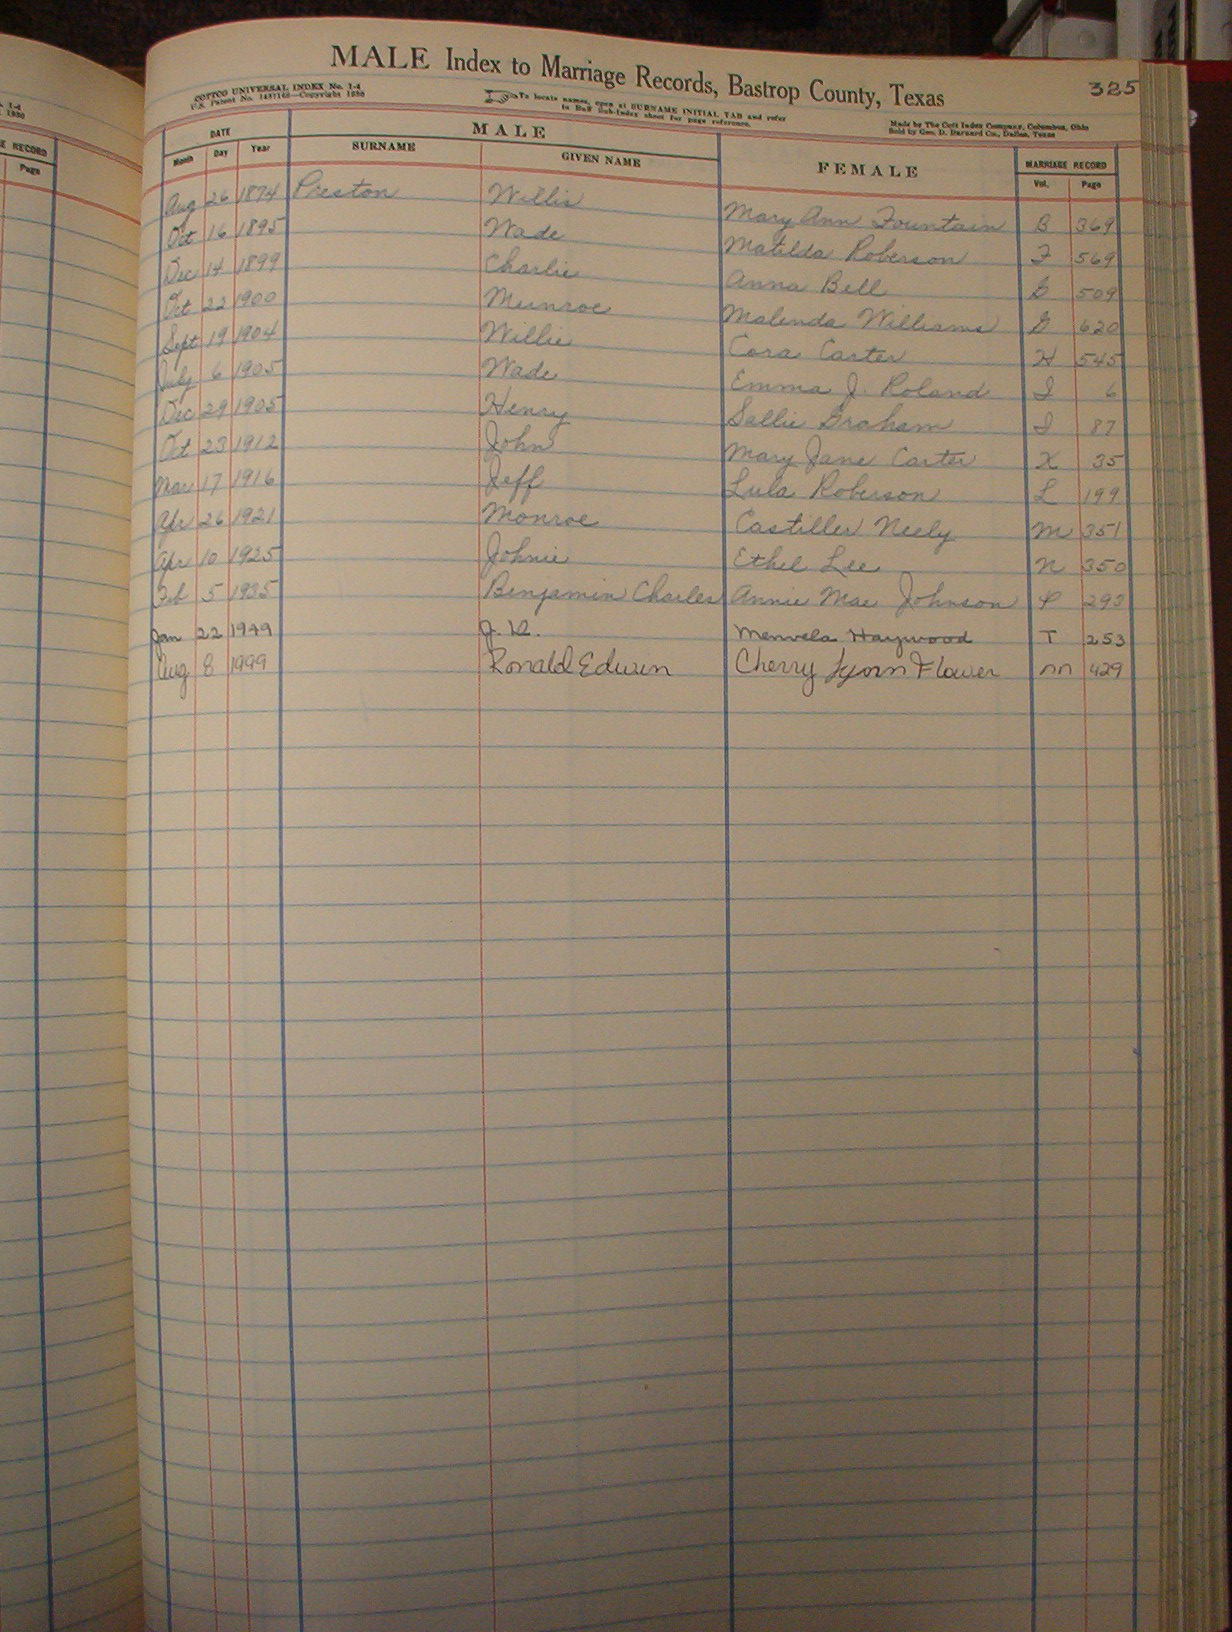 MALE Index to Marriage Records, Bastrop County, Texas
325
COTTCO UNIVERSAL INDEX No. 1-4
U.S. Patent No. 1497168—Copyright 1930
To locate names, open at SURNAME INITIAL TAB and refer
to Buff Sub-Index sheet for page reference.
Made by The Cott Index Company, Columbus, Ohio
Sold by Geo. D. Barnard Co., Dallas, Texas
DATE MALE FEMALE MARRIAGE RECORD
Month Day Year SURNAME GIVEN NAME Vol. Page
Aug 26 1874 Preston Willis Mary Ann Fountain B 369
Oct 16 1895 Wade Matilda Roberson F 569
Dec 14 1899 Charlie Anna Bell G 509
Oct 22 1900 Munroe Malinda Williams G 620
Sept 19 1904 Willie Cora Carter H 545
July 6 1905 Wade Emma J. Roland I 6
Dec 29 1905 Henry Sallie Graham I 87
Oct 23 1912 John Mary Jane Carter K 35
Mar 17 1916 Jeff Lula Roberson L 199
Apr 26 1921 Monroe Castiller Neely M 351
Apr 10 1925 Johnie Ethel Lee N 350
Feb 5 1935 Benjamin Charles Annie Mae Johnson P 293
Jan 22 1949 J. Haywood T 253
Aug 8 1999 Ronald Edwin Cherry Flower 429
E RECORD
Page